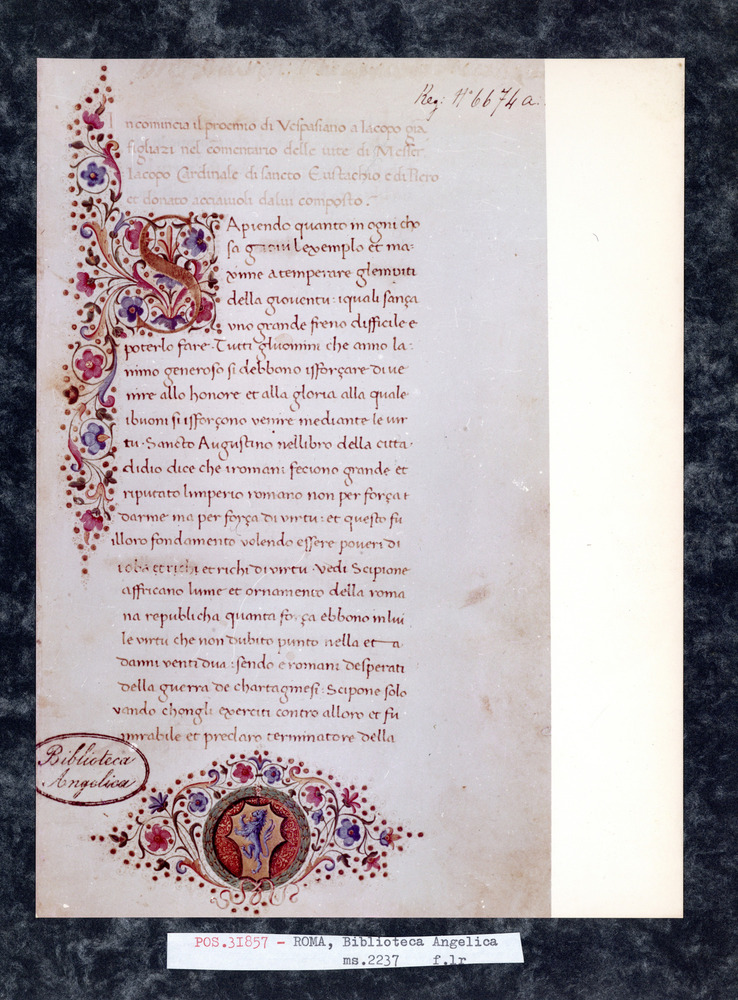 Reg: Nº 6674a.
ncomincia il proemio di Vespasiano a Iacopo già
figliazi nel comentario delle vite di Messer
Iacopo Cardinale di sancto Eustachio e di Piero
et donato acciaiuoli dalui composto.
SApiendo quanto in ogni cho
sa giovi l'exemplo et ma:
xime a temperare gl empiti
della gioventu: iquali sança
uno grande freno difficile e
poterlo fare. Tutti gl uomini che anno la:
nimo generoso si debbono isforçare di ve
nire allo honore et alla gloria alla quale
ibuoni si isforçono venire mediante le vir
tu. Sancto Augustino nel libro della citta
didio dice che iromani feciono grande et
riputato limperio romano non per força
darme ma per força di virtu: et questo fu
illoro fondamento volendo essere poveri di
et richi di virtu. Vedi Scipione
affricano lume et ornamento della roma
na republicha quanta força ebbono inlui
le virtu che non dubito punto nella et a
danni venti dua: sendo e romani desperati
della guerra de chartaginesi: Scipone solo
vando chongli exerciti contro alloro et fu
mirabile et preclaro terminatore della
Biblioteca
Angelica
POS.31857 - ROMA, Biblioteca Angelica
ms.2237 f.1r